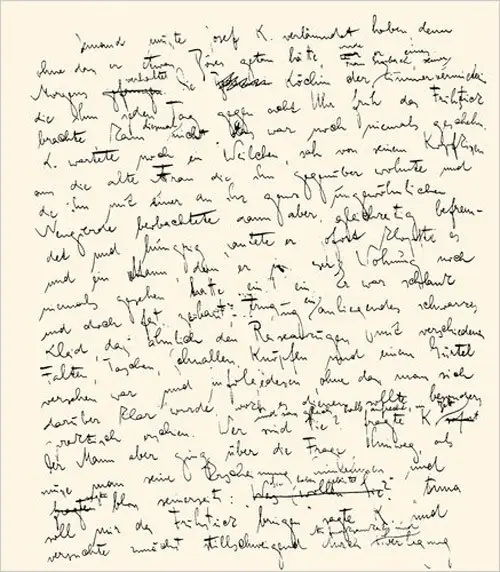 Jemand musste Josef K. verläumdet haben, denn
ohne dass er etwas Böses getan hätte, wurde er eines
Morgens verhaftet. Die Köchin der Frau Grubach, seiner Zimmervermieterin
die ihm jeden Tag gegen acht Uhr früh das Frühstück
brachte kam diesmal nicht. Das war noch niemals geschehn.
K. wartete noch ein Weilchen, sah von seinem Kopfkissen
aus die alte Frau die ihm gegenüber wohnte und
die ihn mit einer an ihr ganz ungewöhnlichen
Neugierde beobachtete dann aber, gleichzeitig befrem-
det und hungrig, läutete er. Sofort klopfte es
und ein Mann, den er in dieser Wohnung noch
niemals gesehen hatte trat ein. Er war schlank
und doch fest gebaut, er trug ein anliegendes schwarzes
Kleid, das ähnlich den Reiseanzügen mit verschiedenen
Falten, Taschen, Schnallen, Knöpfen und einem Gürtel
versehen war und infolgedessen, ohne dass man sich
darüber klar wurde, wozu es dienen sollte, besonders
praktisch erschien. Wer sind Sie? fragte K. und sass gleich halb aufrecht im Bett
Der Mann aber ging über die Frage hinweg, als
müsse man seine Erscheinung hinnehmen und
sagte bloss seinerseits: Sie haben geläutet? Anna
soll mir das Frühstück bringen, sagte K. und
versuchte zunächst stillschweigend durch Aufmerksamkeit und Überlegung